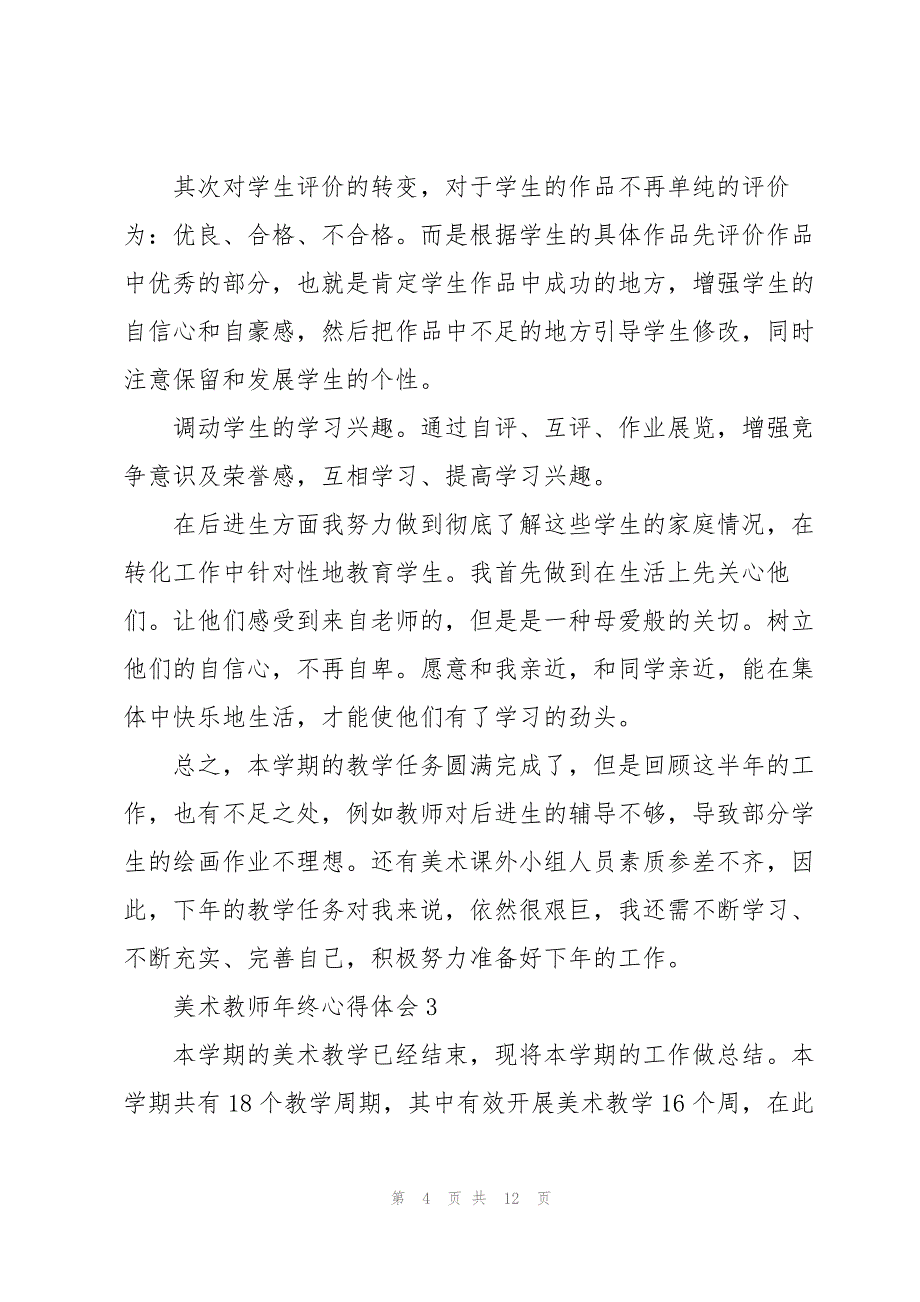 其次对学生评价的转变，对于学生的作品不再单纯的评价
为：优良、合格、不合格。而是根据学生的具体作品先评价作品
中优秀的部分，也就是肯定学生作品中成功的地方，增强学生的
自信心和自豪感，然后把作品中不足的地方引导学生修改，同时
注意保留和发展学生的个性。
调动学生的学习兴趣。通过自评、互评、作业展览，增强竞
争意识及荣誉感，互相学习、提高学习兴趣。
在后进生方面我努力做到彻底了解这些学生的家庭情况，在
转化工作中针对性地教育学生。我首先做到在生活上先关心他
们。让他们感受到来自老师的，但是是一种母爱般的关切。树立
他们的自信心，不再自卑。愿意和我亲近，和同学亲近，能在集
体中快乐地生活，才能使他们有了学习的劲头。
总之，本学期的教学任务圆满完成了，但是回顾这半年的工
作，也有不足之处，例如教师对后进生的辅导不够，导致部分学
生的绘画作业不理想。还有美术课外小组人员素质参差不齐，因
此，下年的教学任务对我来说，依然很艰巨，我还需不断学习、
不断充实、完善自己，积极努力准备好下年的工作。
美术教师年终心得体会 3
本学期的美术教学已经结束，现将本学期的工作做总结。本
学期共有 18 个教学周期，其中有效开展美术教学 16 个周，在此
第 4 页 共 12 页